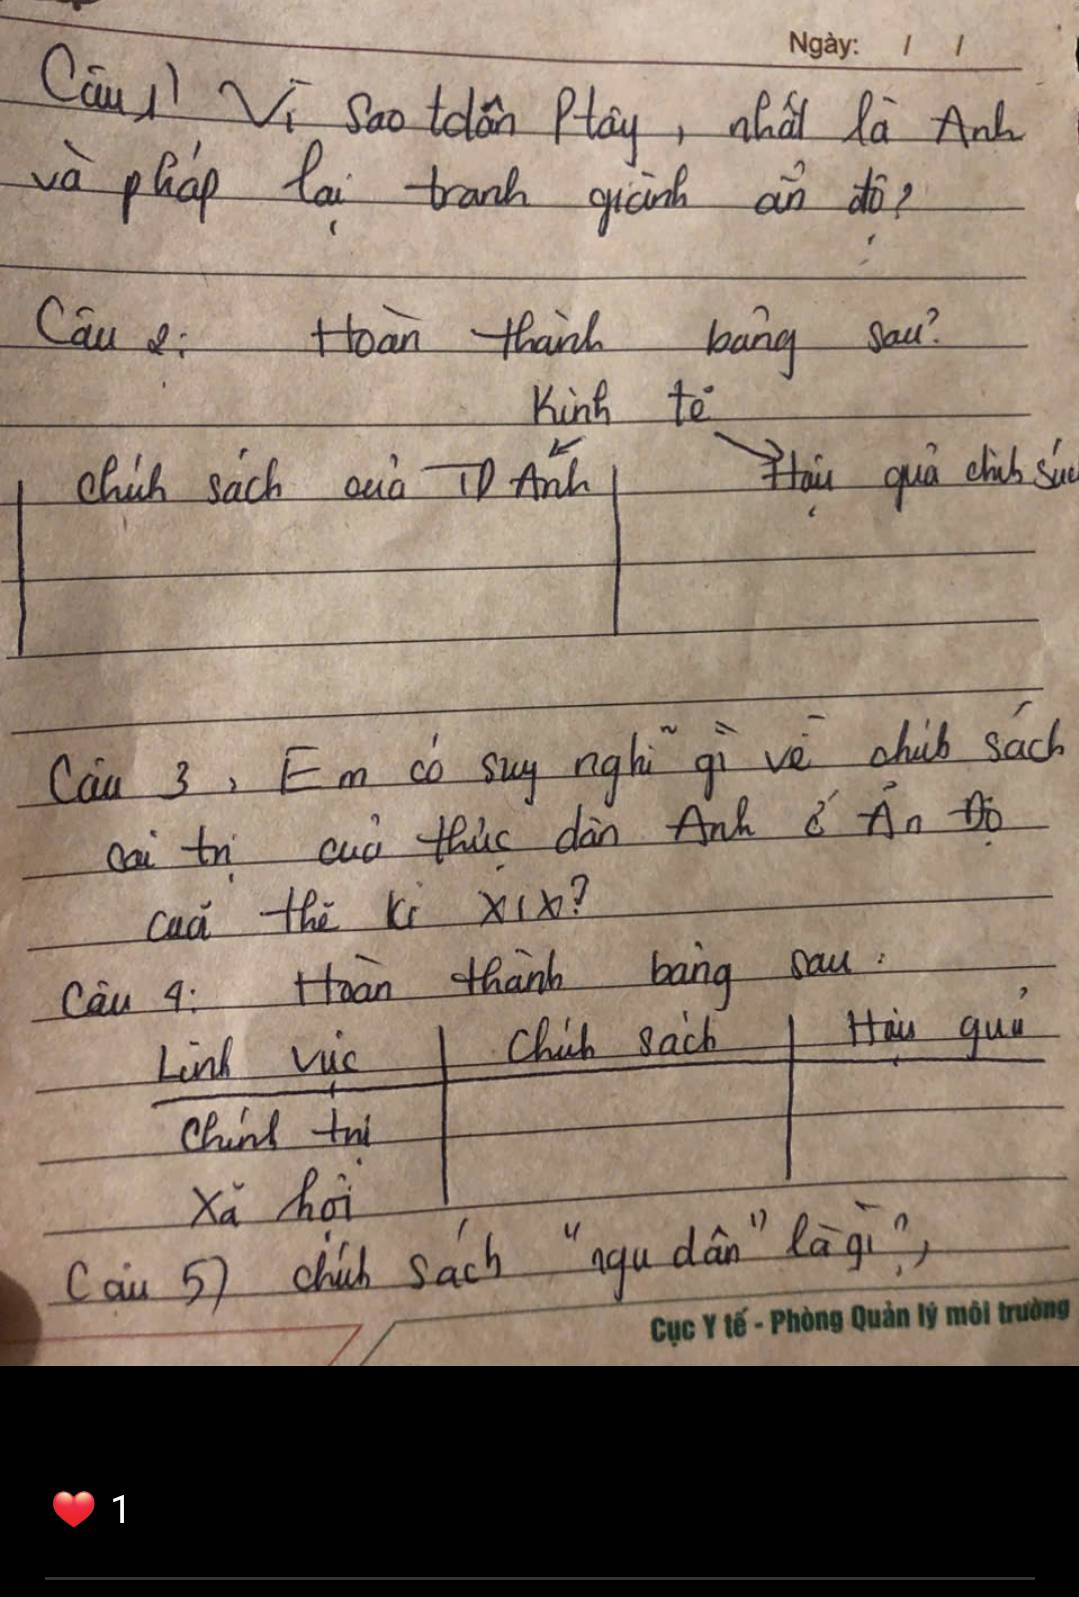 Ngày: / /
Câu 1) Vì sao tdân Ptây, nhất là Anh
và pháp lại tranh giành ấn độ?
Câu 2: Hoàn thành bảng sau?
Kinh tế
chính sách của TD Anh Hậu quả chính sách
Câu 3, Em có suy nghĩ gì về chính sách
cai trị của thực dân Anh ở Ấn Độ
cuối thế kỉ XIX?
Câu 4: Hoàn thành bảng sau:
Lĩnh vực Chính sách Hậu quả
Chính trị
Xã hội
Câu 5) chính sách "ngu dân" là gì?,
Cục Y tế - Phòng Quản lý môi trường
1